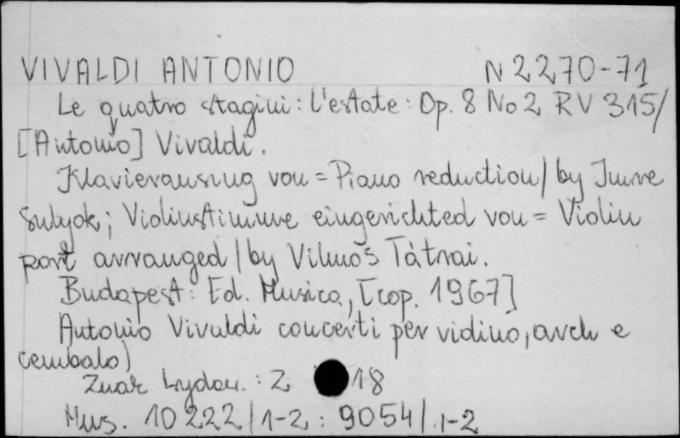 VIVALDI ANTONIO N 2270-71
Le quatro stagini: L'estate: Op. 8 No 2 RV 315/
[Antonio] Vivaldi.
Klavierausnug von = Piano reduction / by Imre
Sulyok; Violinstimme eingerichted von = Violin
part arranged / by Vilmos Tàtrai.
Budapest: Ed. Musica, [cop. 1967]
Antonio Vivaldi concerti per violino, arch e
cembalo)
Znak wydaw.: Z 18
Mus. 10 222/1-2 : 9054/1-2